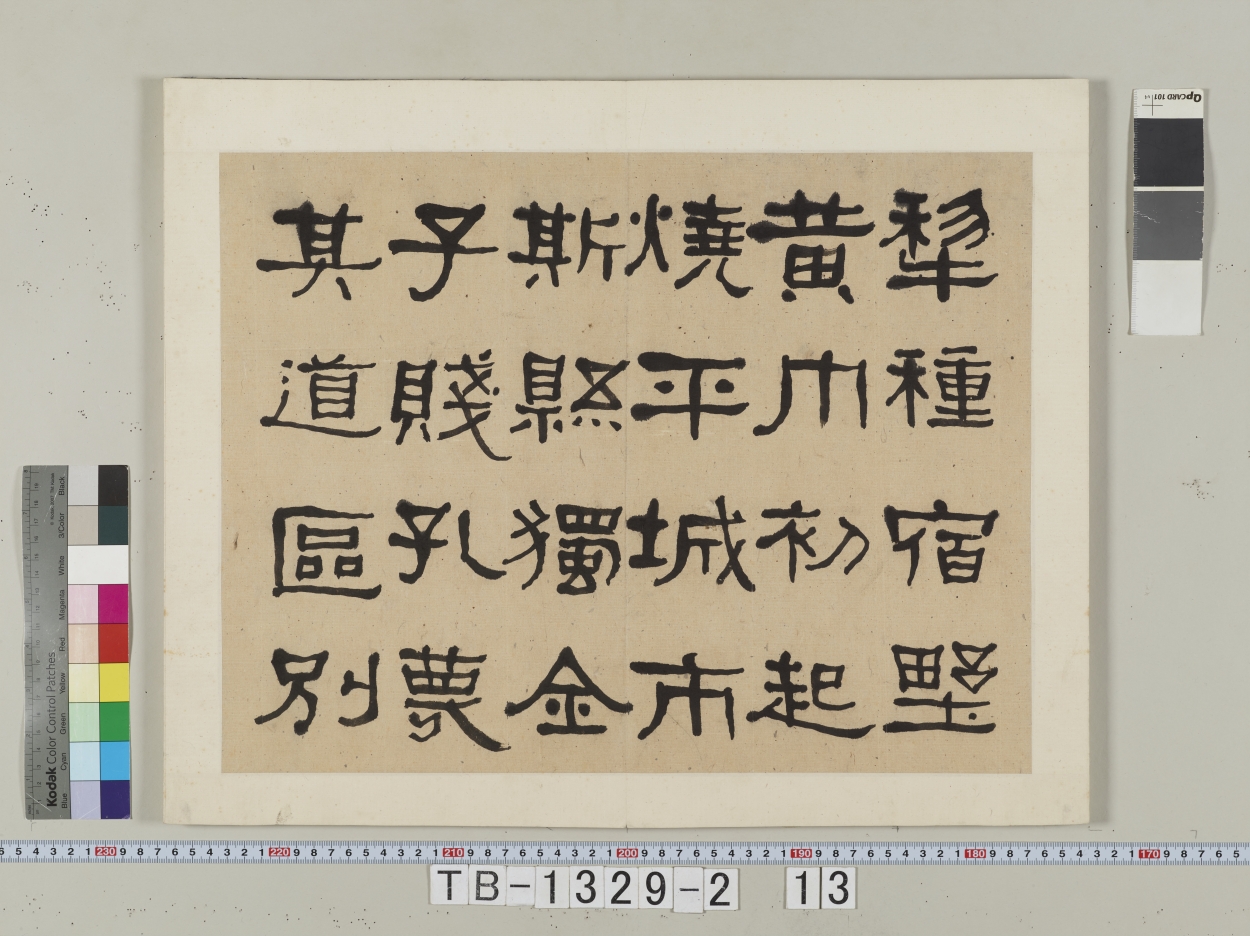 犁種宿墅
黃巾初起
燒平城市
斯縣獨全
子賤孔蔑
其道區別
QPCARD 101
Kodak Color Control Patches
Blue Cyan Green Yellow Red Magenta White 3/Color Black
230 220 210 200 190 180 170
TB-1329-2 13